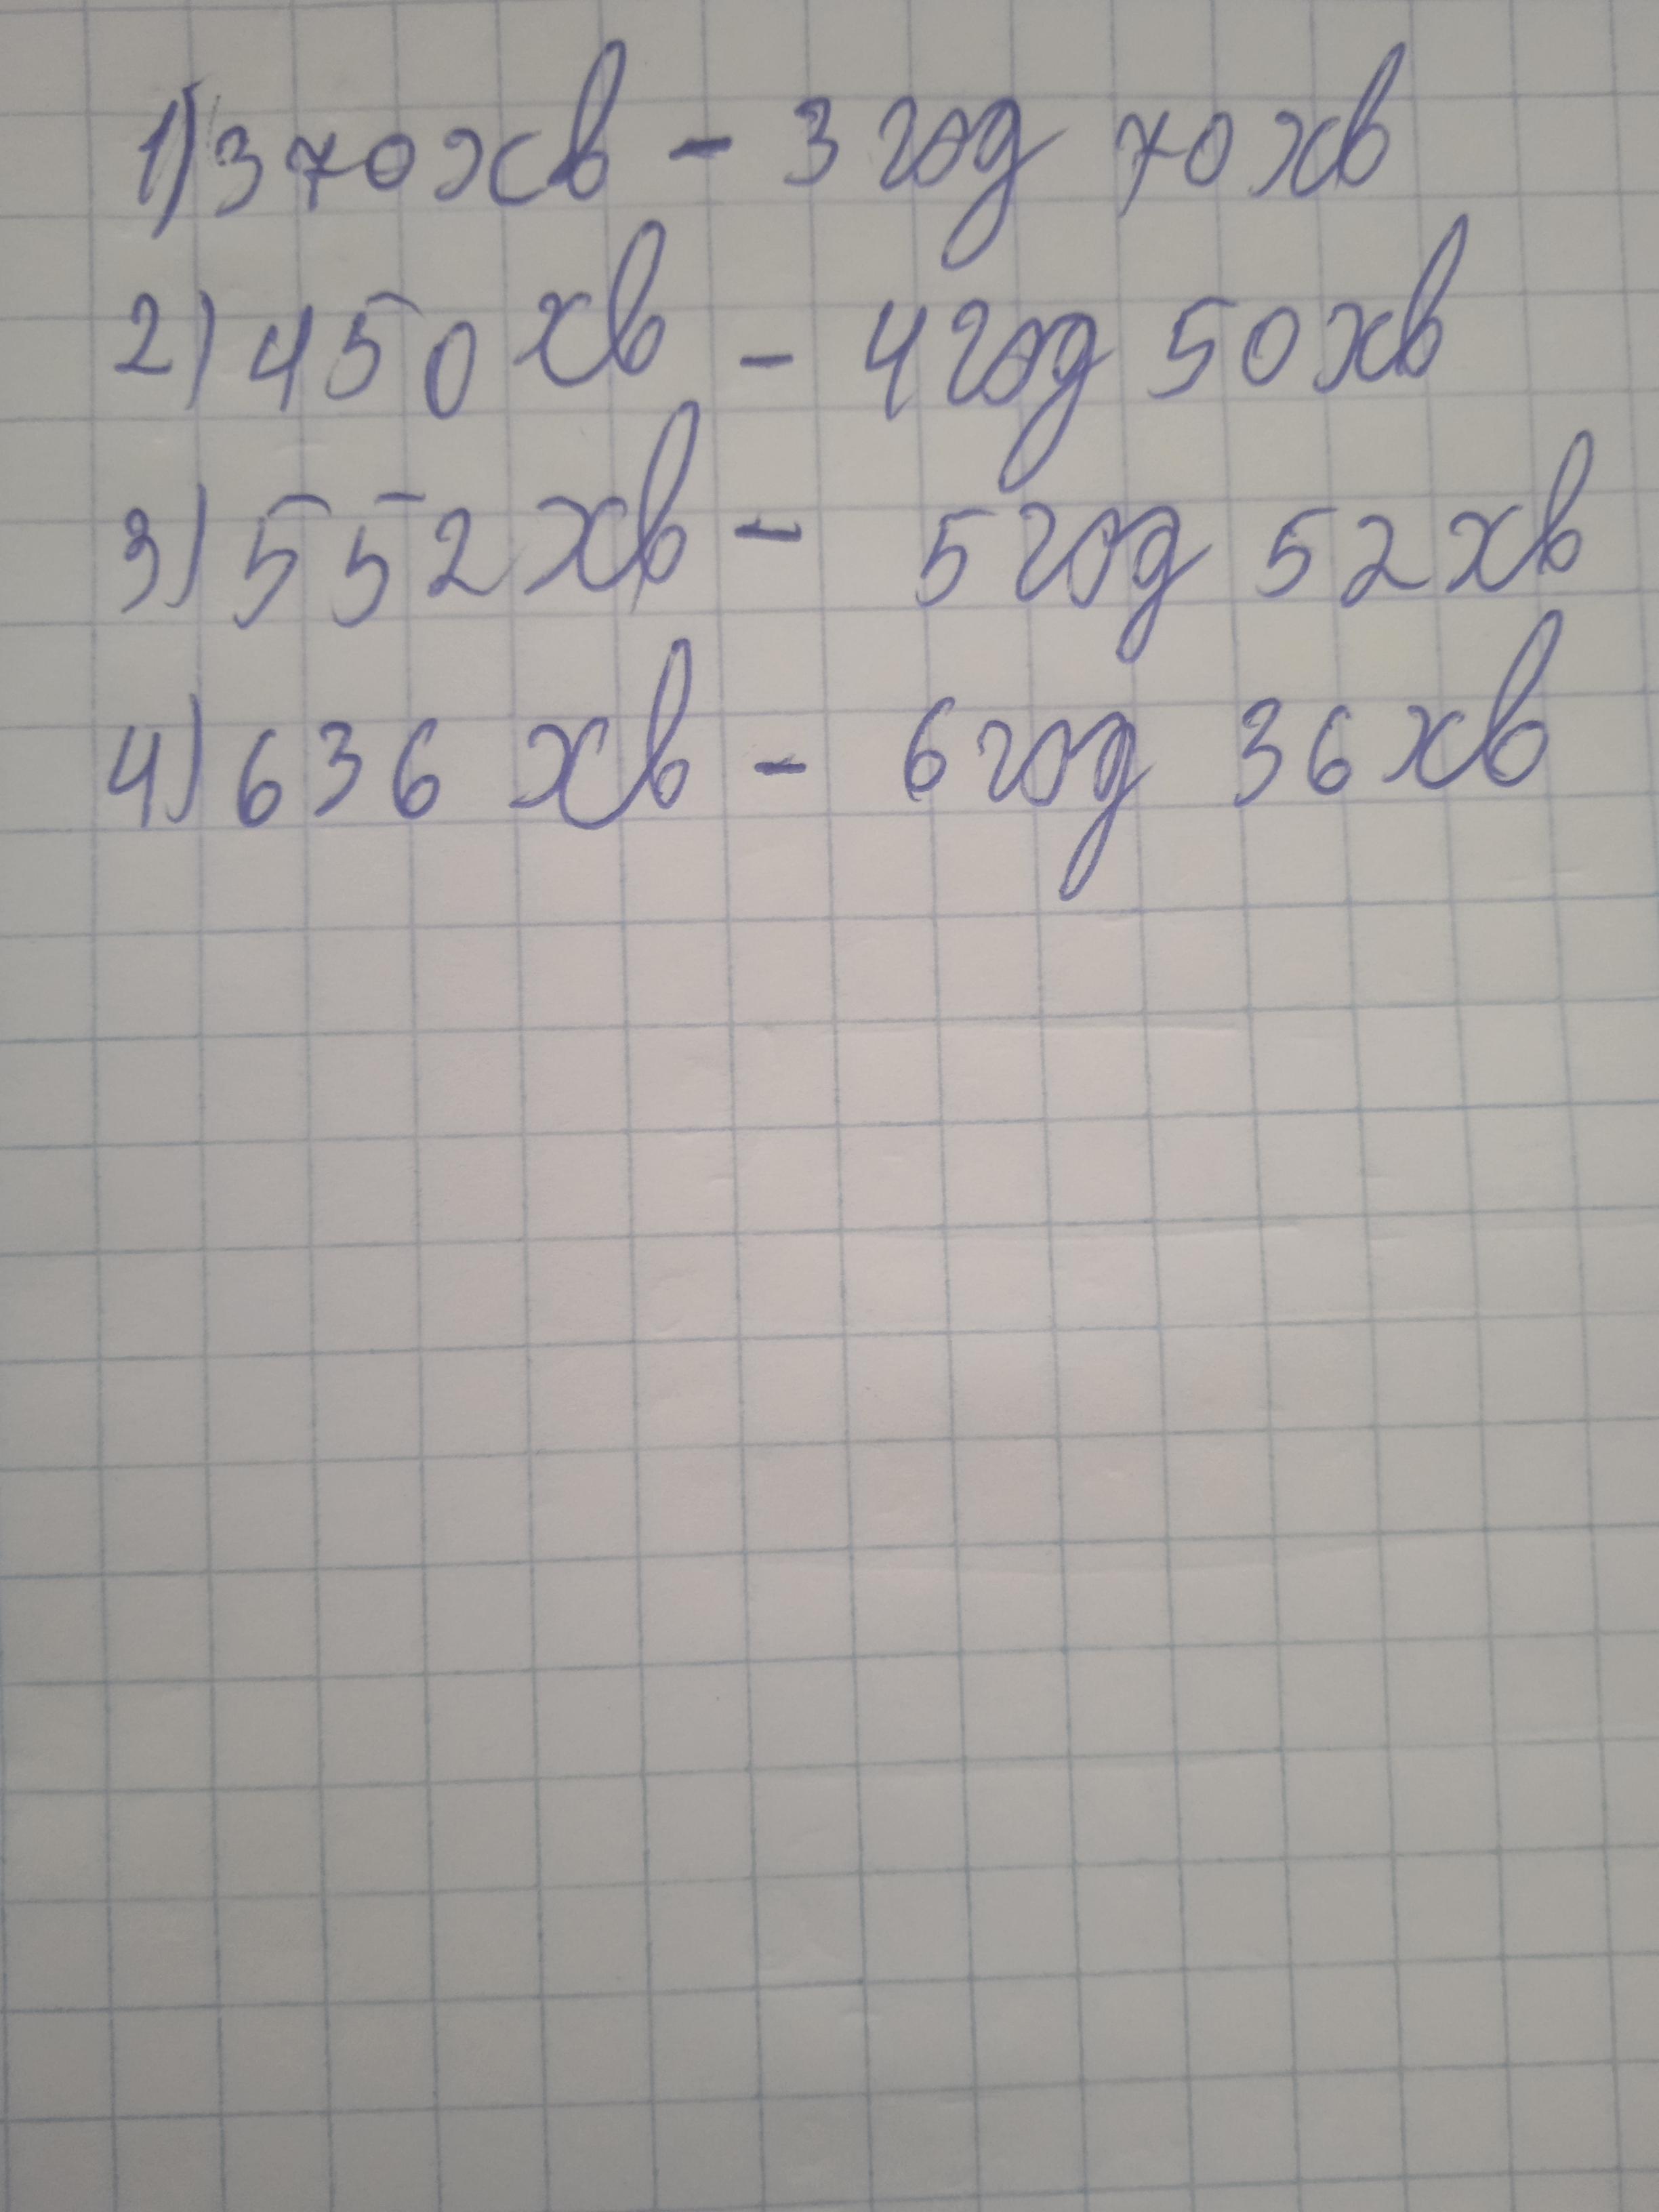 1) 370 хв - 3 год 70 хв
2) 450 хв - 4 год 50 хв
3) 552 хв - 5 год 52 хв
4) 636 хв - 6 год 36 хв